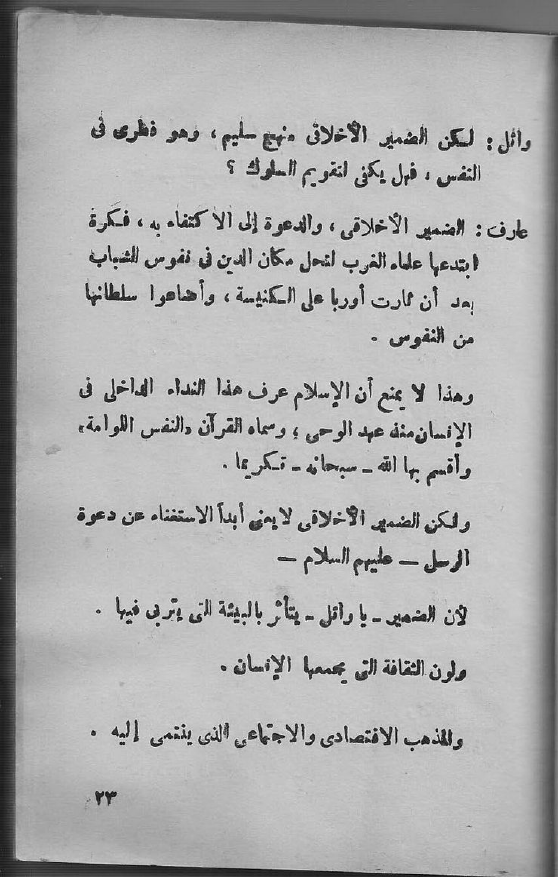 وائل : لكن الضمير الأخلاقى منهج سليم ، وهو فطرى فى
النفس ، فهل يكفى لتقويم السلوك ؟
عارف : الضمير الأخلاقى ، والدعوة إلى الاكتفاء به ، فكرة
ابتدعها علماء الغرب لتحل مكان الدين فى نفوس الشباب
بعد أن ثارت أوربا على الكنيسة ، وأضاعوا سلطانها
من النفوس .
وهذا لا يمنع أن الإسلام عرف هذا النداء الداخلى فى
الإنسان منذ عهد الوحى ؛ وسماه القرآن «النفس اللوامة»
وأقسم بها الله ــ سبحانه ــ تكريما .
ولكن الضمير الأخلاقى لا يعنى أبداً الاستغناء عن دعوة
الرسل ــ عليهم السلام ــ
لأن الضمير ــ يا وائل ــ يتأثر بالبيئة التى يتربى فيها .
ولون الثقافة التى يجمعها الإنسان .
والمذهب الاقتصادى والاجتماعى الذى ينتمى إليه .
٢٣